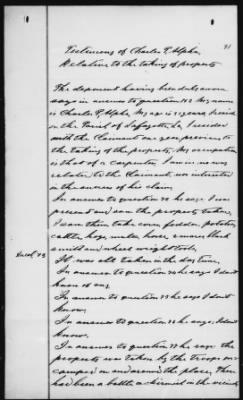 91
Testimony of Charles R. Alpha
Relative to the taking of property
The deponent having been duly sworn
says in answer to question 1st My name
is Charles R. Alpha, My age is 57 years, I reside
in the Parish of Lafayette, La, I resided
with the Claimant one year previous to
the taking of the property, My occupation
is that of a carpenter. I am in no ways
related to the Claimant, nor interested
in the success of his claim,
In answer to question 22 he says I was
present and saw the property taken,
I saw them take corn, fodder, potatoes,
cattle, hogs, mules, horse, mares, black
smith and wheel wright tools,
It was all taken in the day time,
In answer to question he says I dont
know of any,
In answer to question he says I dont
know,
In answer to question he says, I dont
know,
In answer to question he says the
property was taken by the troops en-
camped in and around the place, there
had been a battle or skirmish in the vicinity